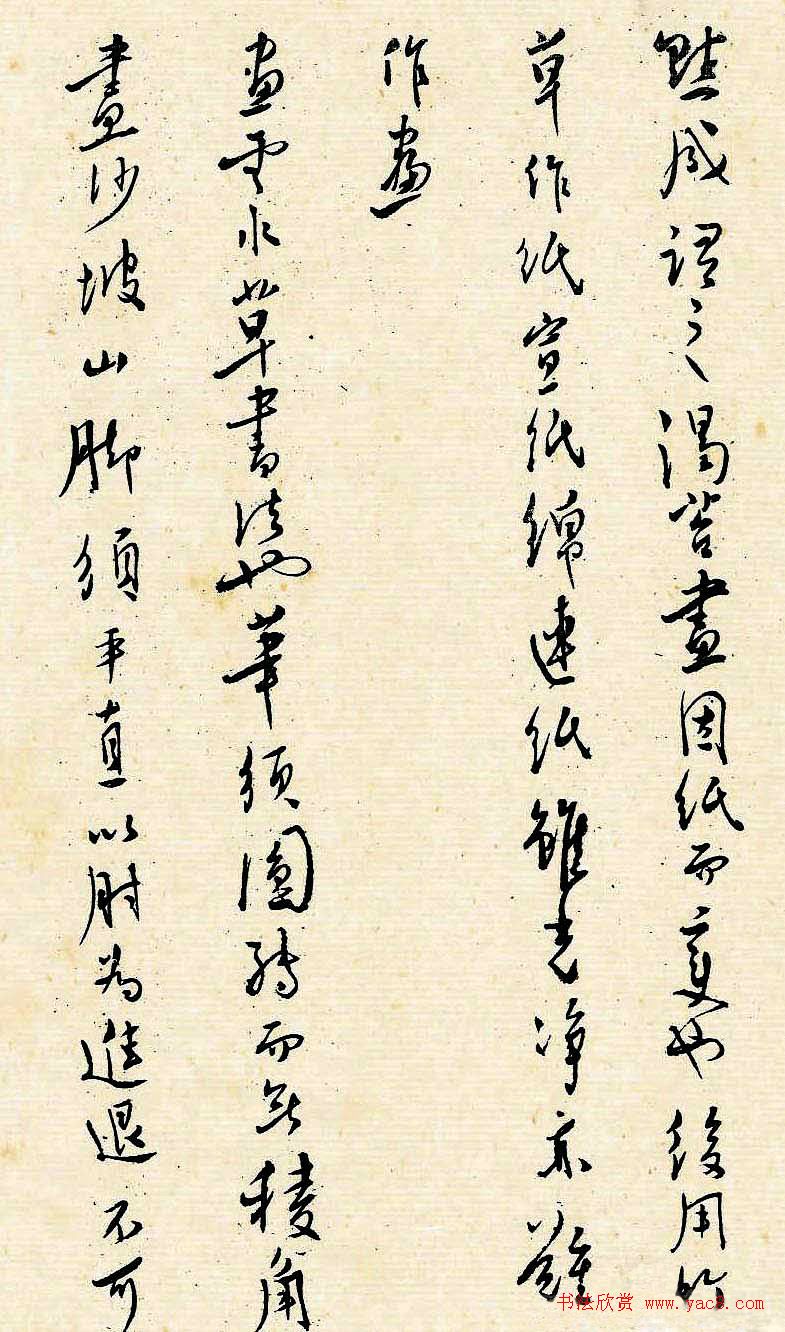 點成謂之渴苔畫因紙而變也後用竹
草作紙宣紙綿連紙雖光净亦難
作畫
畫雲水草書法也筆須圓轉而無稜角
畫沙坡山脚須平直以肘為進退不可
书法欣赏 www.yac8.com